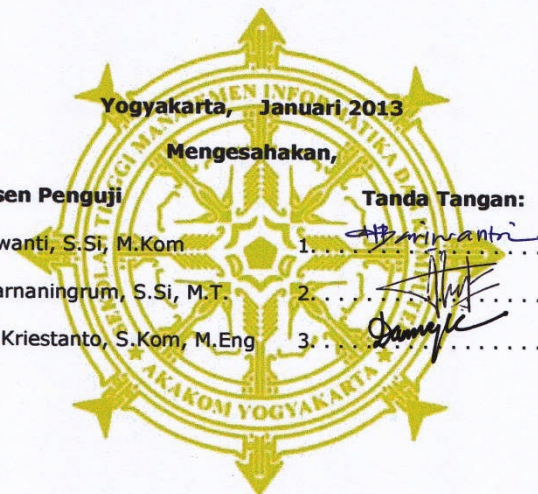 Yogyakarta, Januari 2013
Mengesahakan,
sen Penguji Tanda Tangan:
wanti, S.Si, M.Kom 1.
arnaningrum, S.Si, M.T. 2.
Kriestanto, S.Kom, M.Eng 3.
TINGGI MANAJEMEN INFORMATIKA DA
AKAKOM YOGYAKARTA